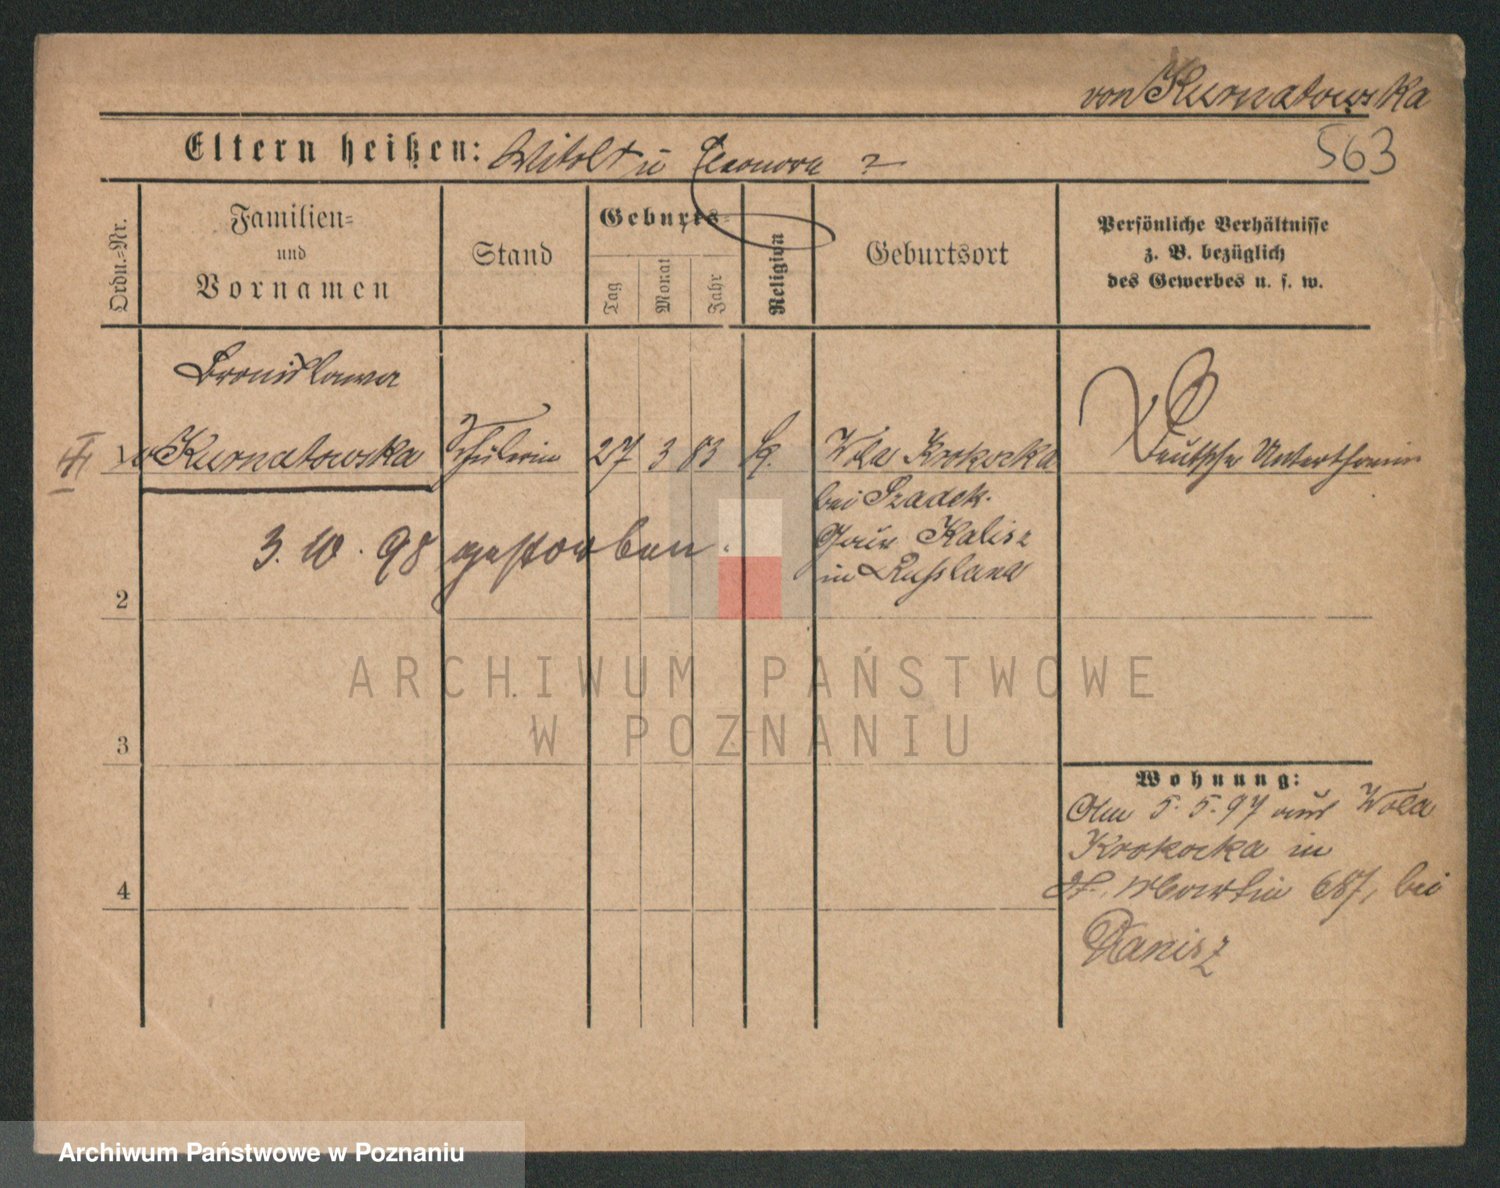 von Kurnatowska
563
Eltern heißen: Witolt u Eleonora ?
Ordn.=Nr.
Familien=
und
Vornamen
Stand
Geburts=
Tag
Monat
Jahr
Religion
Geburtsort
Persönliche Verhältnisse
z. B. bezüglich
des Gewerbes u. s. w.
Bronislawa
1 v Kurnatowska Schülerin 27 3 83 k. Wola Krokocka Deutsche Unterthanin
bei Szadek.
Gouv Kalisz
in Russland
3. 10. 98 gestorben.
2
3
4
ARCHIWUM PAŃSTWOWE
W POZNANIU
Wohnung:
Am 5. 5. 97 aus Wola
Krokocka in
St. Martin 68I, bei
Danisz
Archiwum Państwowe w Poznaniu